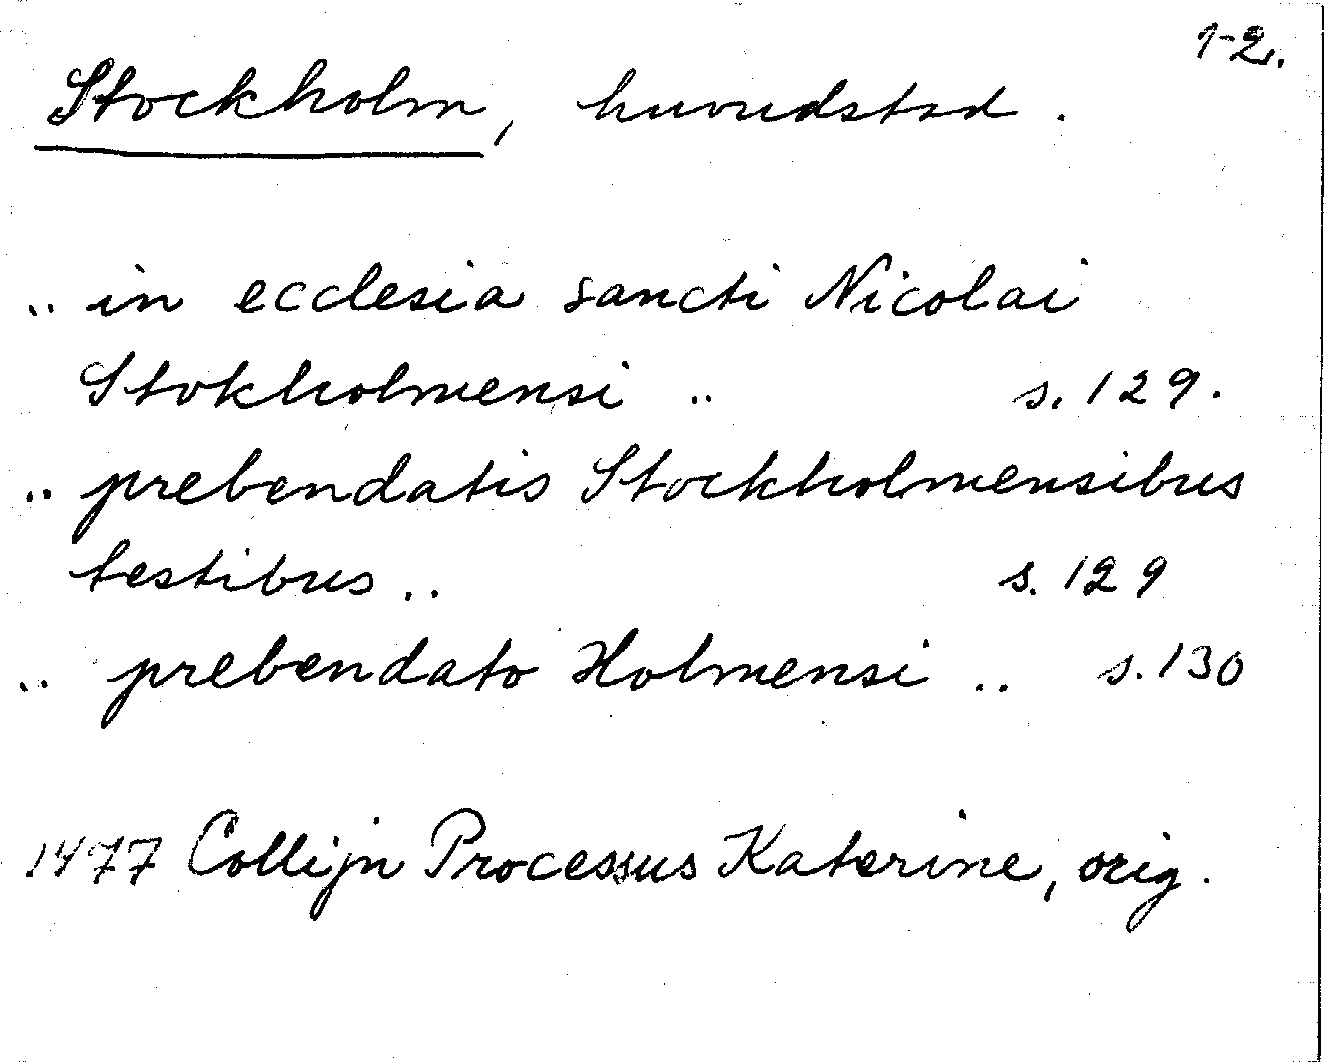 1-2.
Stockholm, huvudstad.
.. in ecclesia sancti Nicolai
Stokholmensi .. s. 129.
.. prebendatis Stockholmensibus
testibus .. s. 129
.. prebendato Holmensi .. s. 130
1477 Collijn Processus Katerine, orig.